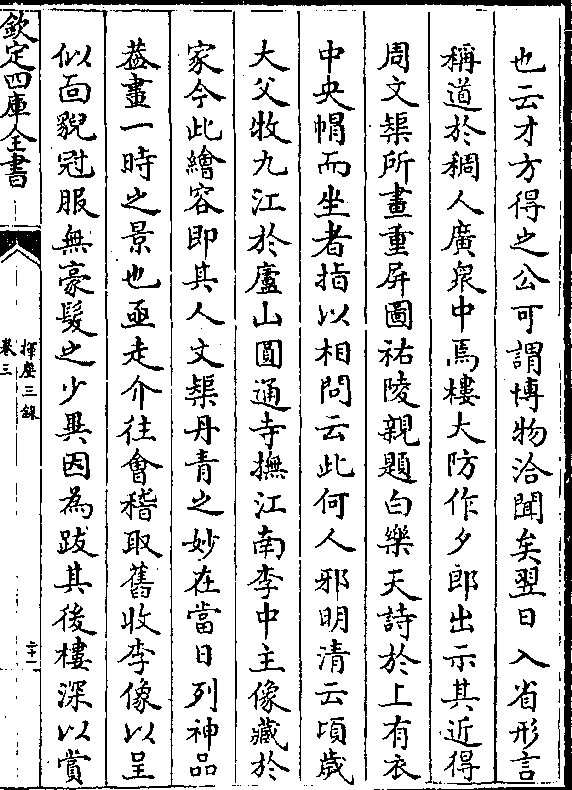 也云才方得之公可謂博物洽聞矣翌日入省形言
稱道於稠人廣衆中焉樓大防作夕郎出示其近得
周文榘所畫重屏圖祐陵親題白樂天詩於上有衣
中央帽而坐者指以相問云此何人邪明清云頃歳
大父牧九江於廬山圓通寺撫江南李中主像藏於
家今此繪容即其人文榘丹青之妙在當日列神品
葢畫一時之景也亟走介往會稽取舊收李像以呈
似面貌冠服無豪髮之少異因為跋其後樓深以賞
欽定四庫全書
揮麈三録
卷三
二十一